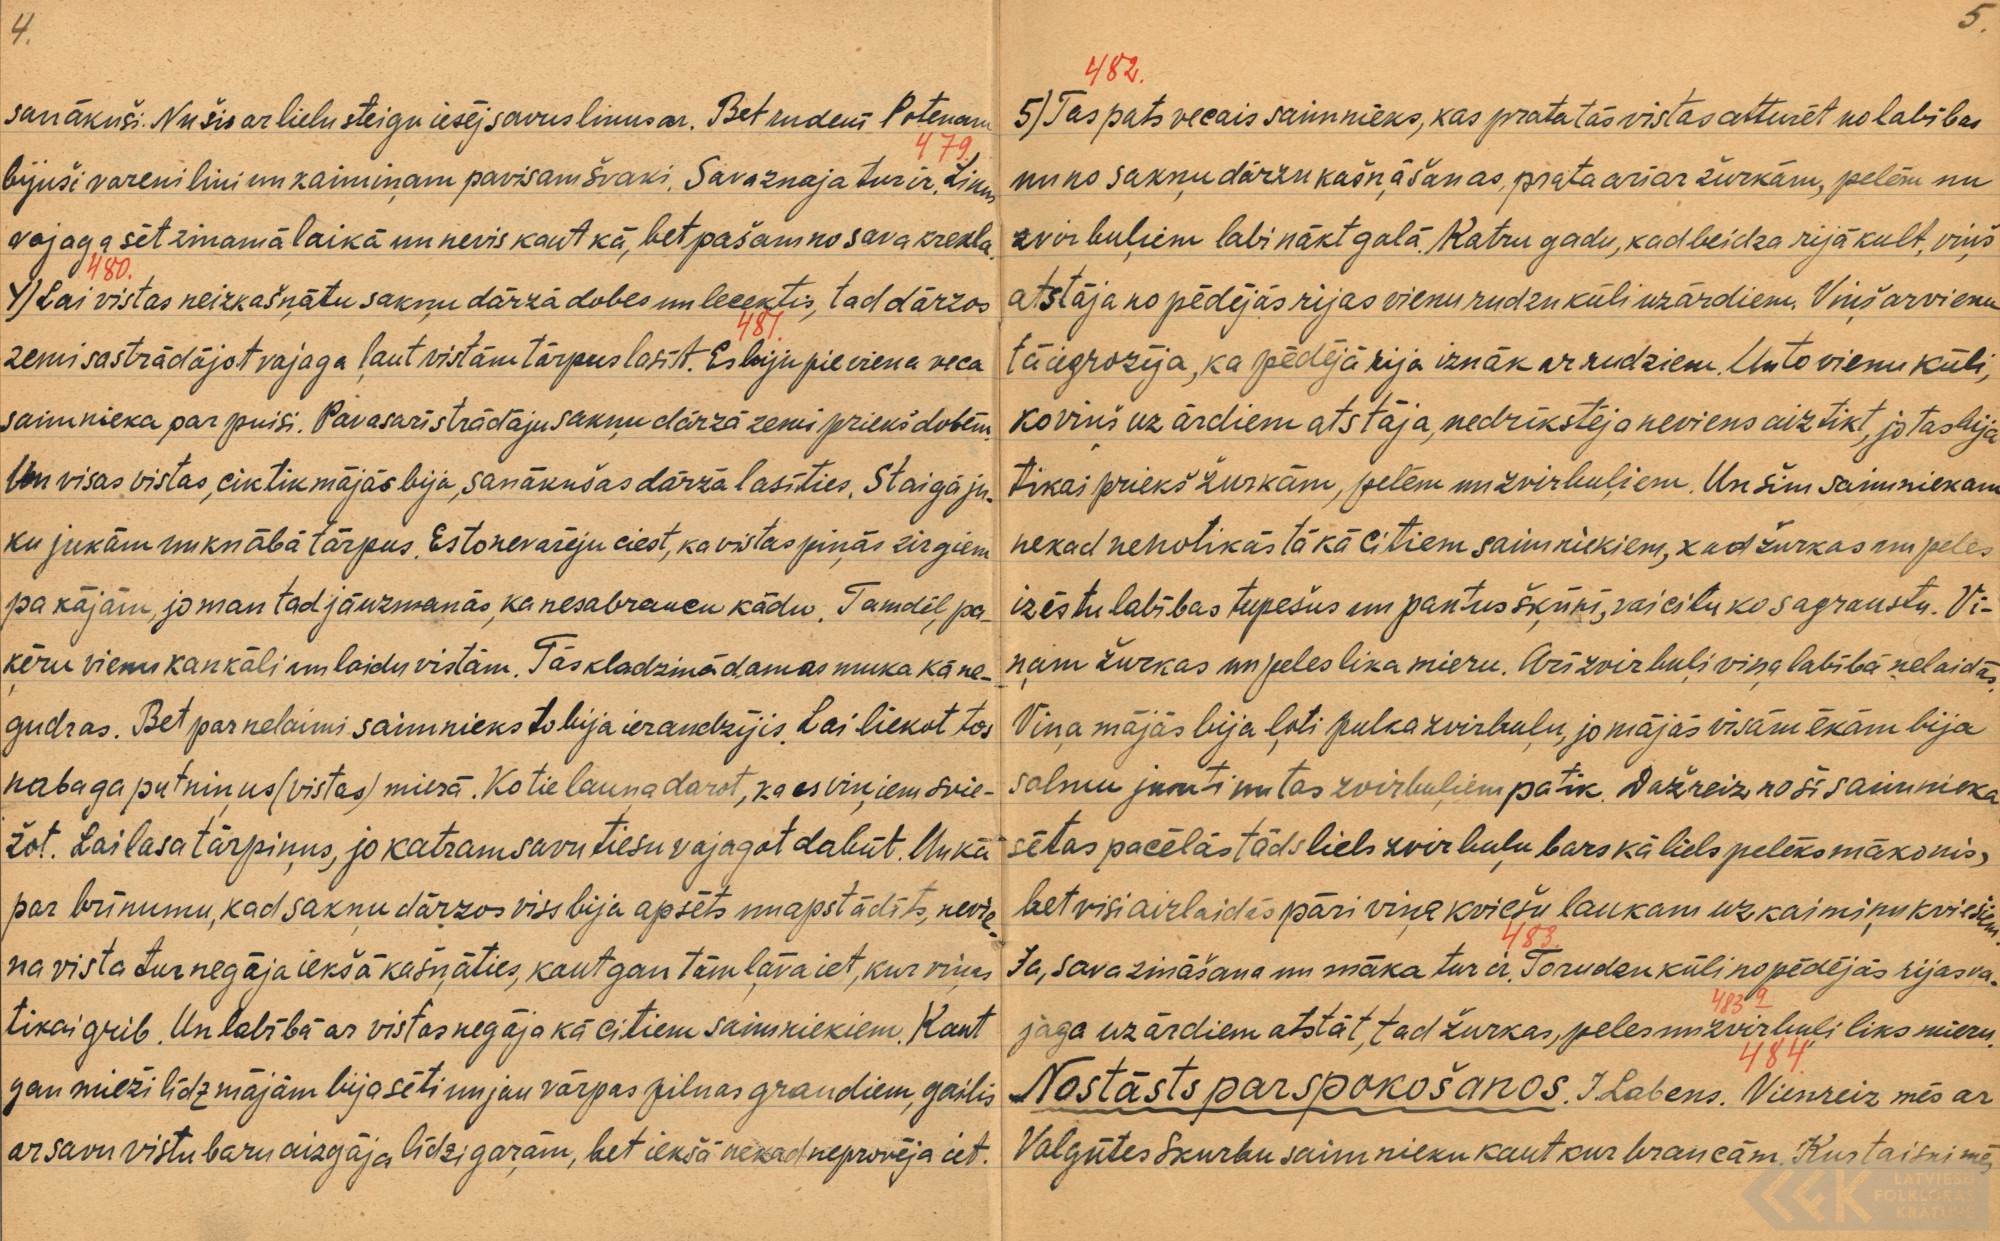 4.
sanākuši. Nu šis ar lielu steigu iesēj savus linus ar. Bet rudenī Potenam
479.
bijuši vareni lini un kaimiņam pavisam švaki. Sava znaja tur ir. Linus
vajaga sēt zinamā laikā un nevis kaut kā, bet pašam no sava krekla.
480.
4) Lai vistas neizkašņātu sakņu dārzā dobes un lecektis, tad dārzos
481.
zemi sastrādājot vajaga ļaut vistām tārpus lasīt. Es biju pie viena veca
saimnieka par puisi. Pavasarī strādāju sakņu dārzā zemi priekš dobēm.
Un visas vistas, cik tik mājās bija, sanākušas dārzā lasīties. Staigā ju-
ku jukām un knābā tārpus. Es to nevarēju ciest, ka vistas pinās zirgiem
pa kājām, jo man tad jāuzmanās, ka nesabraucu kādu. Tamdēļ, pa-
ķēru vienu kankāli un laidu vistām. Tās kladzinādamas muka kā ne-
gudras. Bet par nelaimi saimnieks to bija ieraudzījis. Lai liekot tos
nabaga putniņus (vistas) mierā. Ko tie launa darot, ka es viņiem svie-
žot. Lai lasa tārpiņus, jo katram savu tiesu vajagot dabūt. Un kā
par brīnumu, kad sakņu dārzos viss bija apsēts un apstādīts, nevie-
na vista tur negāja iekšā kašņāties, kaut gan tām ļāva iet, kur viņas
tikai grib. Un labībā ar vistas negāja kā citiem saimniekiem. Kaut
gan mieži līdz mājām bija sēti un jau vārpas pilnas graudiem, gailis
ar savu vistu baru aizgāja līdzi garām, bet iekšā nekad neprovēja iet.
5.
482.
5) Tas pats vecais saimnieks, kas prata tās vistas atturēt no labības
un no sakņu dārzu kašņāšanas, prata arī ar žurkām, pelēm un
zvirbuļiem labi nākt galā. Katru gadu, kad beidza rijā kult, viņš
atstāja no pēdējās rijas vienu rudzu kūli uz ārdiem. Viņš arvienu
tā iegrozīja, ka pēdējā rija iznāk ar rudziem. Un to vienu kūli,
ko viņš uz ārdiem atstāja, nedrīkstēja neviens aiztikt, jo tas bija
tikai priekš žurkām, pelēm un zvirbuļiem. Un šim saimniekam
nekad nenotikās tā kā citiem saimniekiem, kad žurkas un peles
izēstu labības tupešus un pantus šķūnī, vai citu ko sagraustu. Vi-
ņam žurkas un peles lika mieru. Arī zvirbuļi viņa labībā nelaidās.
Viņa mājās bija ļoti pulka zvirbuļu, jo mājās visām ēkām bija
salmu jumti un tas zvirbuļiem patik. Dažreiz no šī saimnieka
sētas pacēlās tāds liels zvirbuļu bars kā liels pelēks mākonis,
bet visi aizlaidās pāri viņa kviešu laukam uz kaimiņu kviešiem.
483.
Ja, sava zināšana un māka tur ir. To rudzu kūli no pēdējās rijas va-
483 a
jaga uz ārdiem atstāt, tad žurkas, peles un zvirbuļi liks mieru.
484.
Nostāsts par spokošanos. J. Labens. Vienreiz mēs ar
Valgūtes Skurbu saimnieku kaut kur braucām. Kur taisni mēs
LATVIEŠU
FOLKLORAS
KRĀTUVE